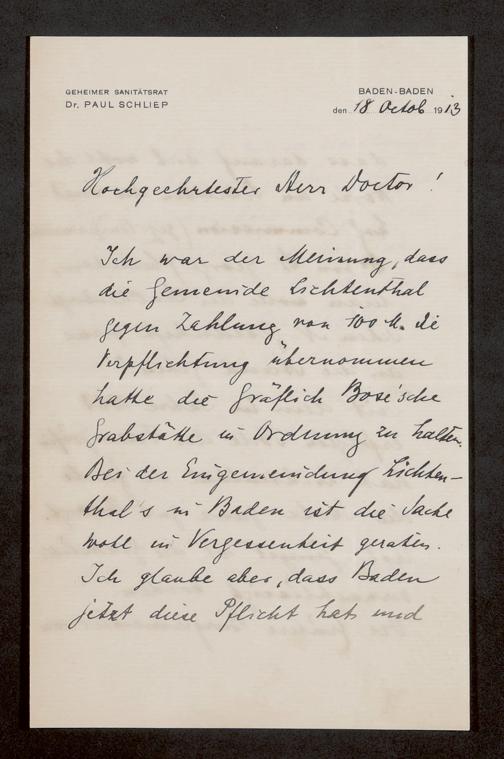 GEHEIMER SANITÄTSRAT
Dr. PAUL SCHLIEP
BADEN-BADEN
den 18 Octob 1913
Hochgeehrtester Herr Doctor!
Ich war der Meinung, dass
die Gemeinde Lichtenthal
gegen Zahlung von 100 M. die
Verpflichtung übernommen
hatte die Gräflich Bose'sche
Grabstätte in Ordnung zu halten.
Bei der Eingemeindung Lichten-
thal's in Baden ist die Sache
wohl in Vergessenheit geraten.
Ich glaube aber, dass Baden
jetzt diese Pflicht hat und